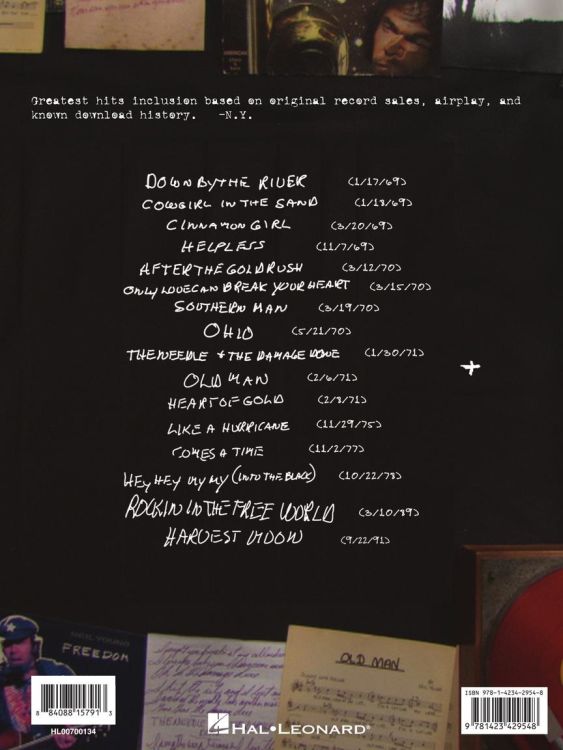 Greatest hits inclusion based on original record sales, airplay, and
known download history. -N.Y.
DOWN BY THE RIVER (1/17/69)
COWGIRL IN THE SAND (1/18/69)
CINNAMON GIRL (3/20/69)
HELPLESS (11/7/69)
AFTER THE GOLDRUSH (3/12/70)
ONLY LOVE CAN BREAK YOUR HEART (3/15/70)
SOUTHERN MAN (3/19/70)
OHIO (5/21/70)
THE NEEDLE + THE DAMAGE DONE (1/30/71)
OLD MAN (2/6/71)
HEART OF GOLD (2/8/71)
LIKE A HURRICANE (11/29/75)
COMES A TIME (11/2/77)
HEY HEY MY MY (INTO THE BLACK) (10/22/78)
ROCKIN IN THE FREE WORLD (3/10/89)
HARVEST MOON (9/22/91)
NEIL YOUNG
FREEDOM
OLD MAN
THE NEEDLE
8 84088 15791 3
HL00700134
HAL•LEONARD®
ISBN 978-1-4234-2954-8
9 781423 429548